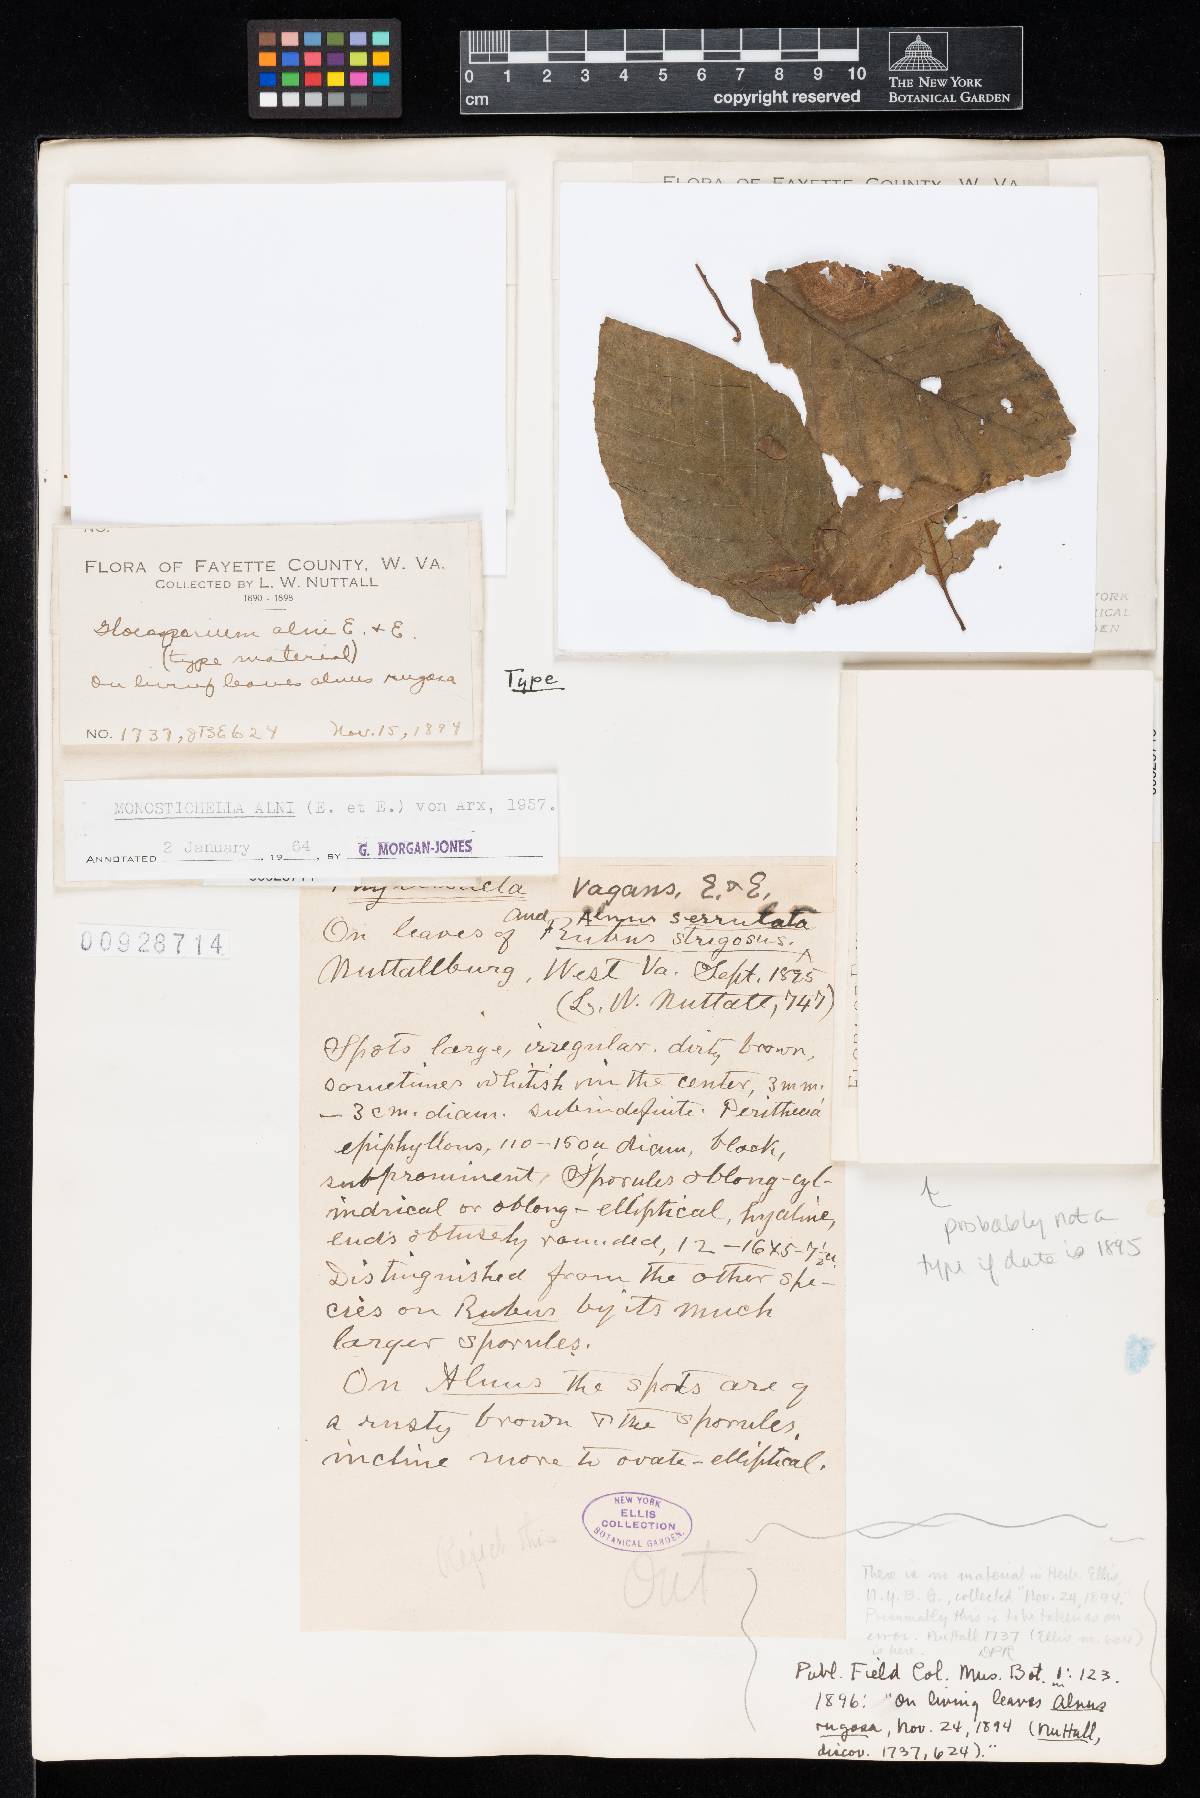 0 1 2 3 4 5 6 7 8 9 10
cm
copyright reserved
THE NEW YORK
BOTANICAL GARDEN
FLORA OF FAYETTE COUNTY, W. VA.
NO.
FLORA OF FAYETTE COUNTY, W. VA.
COLLECTED BY L. W. NUTTALL
1890 - 1898
Gloeosporium alni E. & E.
(type material)
On living leaves alnus rugosa
NO. 1737, 624 Nov. 15, 1894
Type
MONOSTICHELLA ALNI (E. et E.) von Arx, 1957.
ANNOTATED 2 January 1964, BY G. MORGAN-JONES
00928714
vagans, E. & E.
and Alnus serrulata
On leaves of Rubus strigosus.
Nuttallburg, West Va. Sept. 1895
(L. W. Nuttall, 747)
Spots large, irregular. dirty brown,
sometimes whitish in the center, 3 mm.
– 3 cm. diam. subindefinite. Perithecia
epiphyllous, 110–150µ diam, black,
subprominent, Sporules oblong-cyl-
indrical or oblong-elliptical, hyaline,
ends obtusely rounded, 12–16x5–7½µ.
Distinguished from the other spe-
cies on Rubus by its much
larger sporules.
On Alnus the spots are of
a rusty brown & the sporules,
incline more to ovate-elliptical.
NEW YORK
ELLIS
COLLECTION
BOTANICAL GARDEN.
Reject this
Out
YORK
ICAL
DEN
probably not a
type if date is 1895
There is no material in Herb. Ellis,
N.Y.B.G., collected "Nov. 24, 1894."
Presumably this is to be taken as an
error. Nuttall 1737 (Ellis
is here. DPR
Publ. Field Col. Mus. Bot. 1: 123.
1896: "On living leaves Alnus
rugosa, Nov. 24, 1894 (Nuttall,
discov. 1737, 624)."